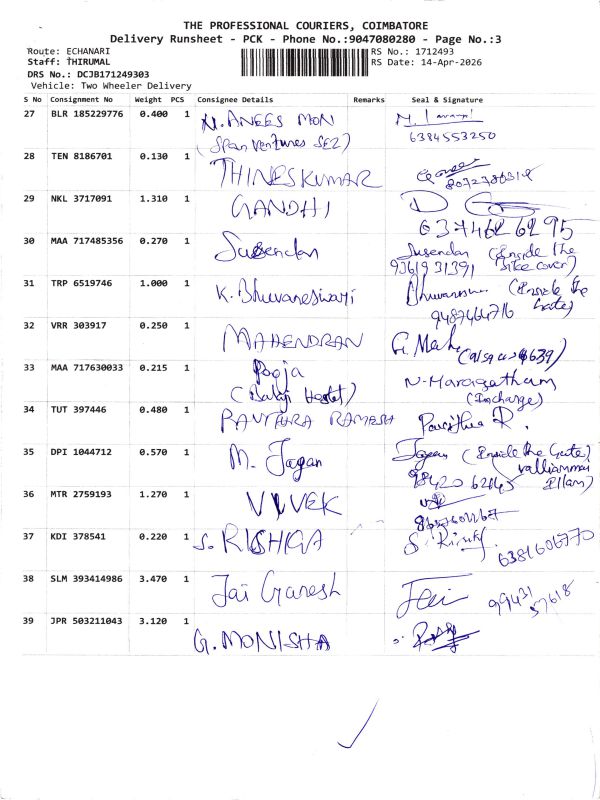 THE PROFESSIONAL COURIERS, COIMBATORE
Delivery Runsheet - PCK - Phone No.:9047080280 - Page No.:3
Route: ECHANARI
RS No.: 1712493
Staff: THIRUMAL
RS Date: 14-Apr-2026
DRS No.: DCJB171249303
Vehicle: Two Wheeler Delivery
S No Consignment No Weight PCS Consignee Details Remarks Seal & Signature
27 BLR 185229776 0.400 1 N. ANEES MON
(Span Ventures SEZ) 6384553250
28 TEN 8186701 0.130 1 THINESKUMAR
29 NKL 3717091 1.310 1 GANDHI
6374626295
30 MAA 717485356 0.270 1 Susendan Susendan (Inside the
9361931391 bike cover)
31 TRP 6519746 1.000 1 K. Bhuvaneswari Bhuvanesw (Inside the
Gate)
9487464716
32 VRR 303917 0.250 1 MAHENDRAN
33 MAA 717630033 0.215 1 Pooja N. Maragatham
(Balaji Hostel) (Incharge)
34 TUT 397446 0.480 1 PAVITHRA RAMESH Pavithra R.
35 DPI 1044712 0.570 1 M. Jagan Jagan (Inside the Gate)
Valliammai
Illam)
36 MTR 2759193 1.270 1 VIVEK
37 KDI 378541 0.220 1 S. RISHIGA
6381606770
38 SLM 393414986 3.470 1 Jai Ganesh Jai 99431
57618
39 JPR 503211043 3.120 1 G. MONISHA